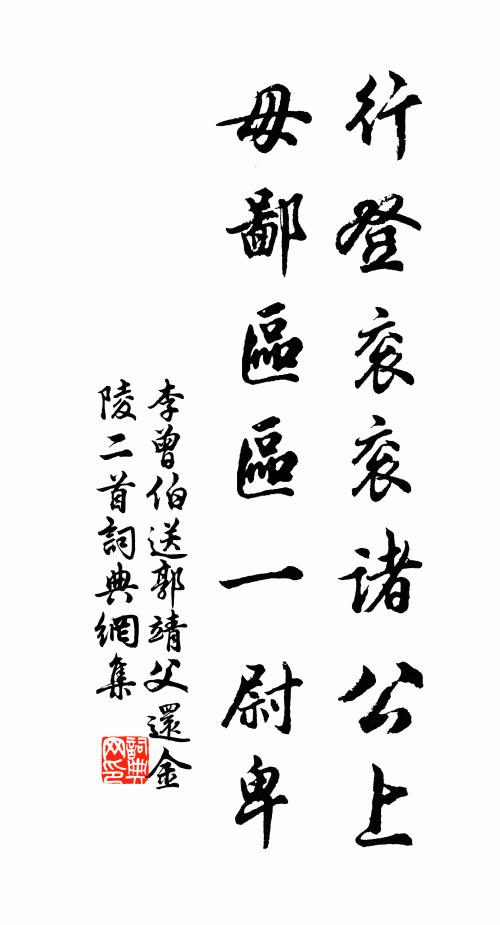 行登衮衮諸公上
毋鄙區區一尉卑
李曾伯送郭靖父還金
陵二首詞典網集
詞典
网印